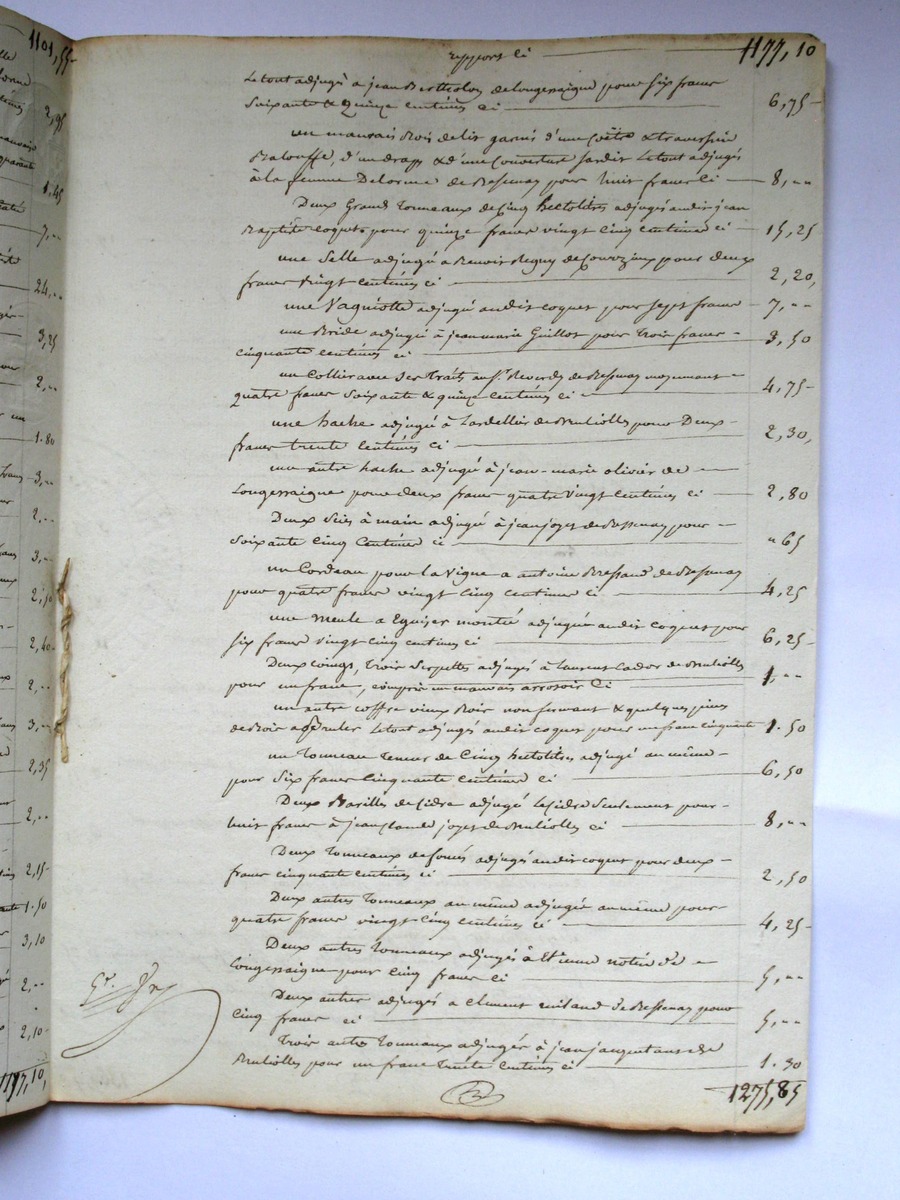 1101,55
2,95
1.45
7,--
24,--
3,25
2,--
1.80
3,--
2,--
3,--
2,50
2,40
2,--
3,--
2,35
2,--
2,15
1.50
3,10
2,--
2,10
1177,10
report ci 1177,10
Le tout adjugé a jean Berthelon de longessaigne pour six francs
soixante & Quinze centimes ci 6,75
un mauvais Bois de lit garni d'une Coëtre & traversin
Balouffe, d'un drap & d'une Couverture sardis Le tout adjugés
à la femme Delorme de Bessenay pour huit francs Ci 8,--
Deux Grand Tonneaux de Cinq hectolitres adjugés audit jean
Baptiste Coquet pour quinze francs vingt cinq centimes ci 15,25
une Selle adjugé a Benoit Reguy de Couvezieux pour deux
francs vingt centimes ci 2,20
une Vagniotte adjugé audit coquet pour sept francs 7,--
une Bride adjugée à jeanmarie Guillot pour trois francs
cinquante centimes ci 3,50
un Collier avec ses Traits au Sr. Reverdy de Bessenay moyennant
quatre francs soixante & quinze centimes ci 4,75
une hache adjugée à Lardellier de Brulioles pour Deux
francs trente Centimes ci 2,30
une autre hache adjugé à jean-marie olivier de
Longessaigne pour deux francs quatre vingt centimes ci 2,80
Deux Scies à main adjugé à jean joyet de Bessenay pour
soixante Cinq Centimes ci " 65
un Cordeau pour la Vigne a antoine Bressand de Bessenay
pour quatre francs vingt Cinq centimes ci 4,25
une Meule a Eguiser montée adjugée audit coquet pour
six francs vingt cinq centimes ci 6,25
Deux coings, trois Serpettes adjugés à Laurent Cador de Brulioles
pour un franc, compris un mauvais arrosoir Ci 1,--
un autre coffre vieux Bois non fermant & quelques pieces
de Bois a Bruler Le tout adjugés audit coquet pour un franc cinquante 1.50
un Tonneau Teneur de Cinq hectolitres adjugé au même
pour Six francs Cinquante Centimes ci 6,50
Deux Barilles de Cidre adjugé Le cidre Seulement pour
huit francs à jean claude joyet de Brulioles ci 8,--
Deux Tonneaux adjugés audit coquet pour deux
francs cinquante centimes ci 2,50
Deux autres Tonneaux au même adjugée au même pour
quatre francs vingt Cinq Centimes ci 4,25
Deux autres Tonneaux adjugés à Etienne de
Longessaigne pour Cinq francs Ci 5,--
Deux autres adjugés a Clement de Bessenay pour
Cinq francs ci 5,--
Trois autres Tonneaux adjugés à jean de
Brulioles pour un franc Trente Centimes ci 1.30
1275,85